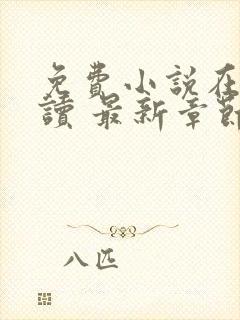 免費小說在
讀 最新章節
八匹